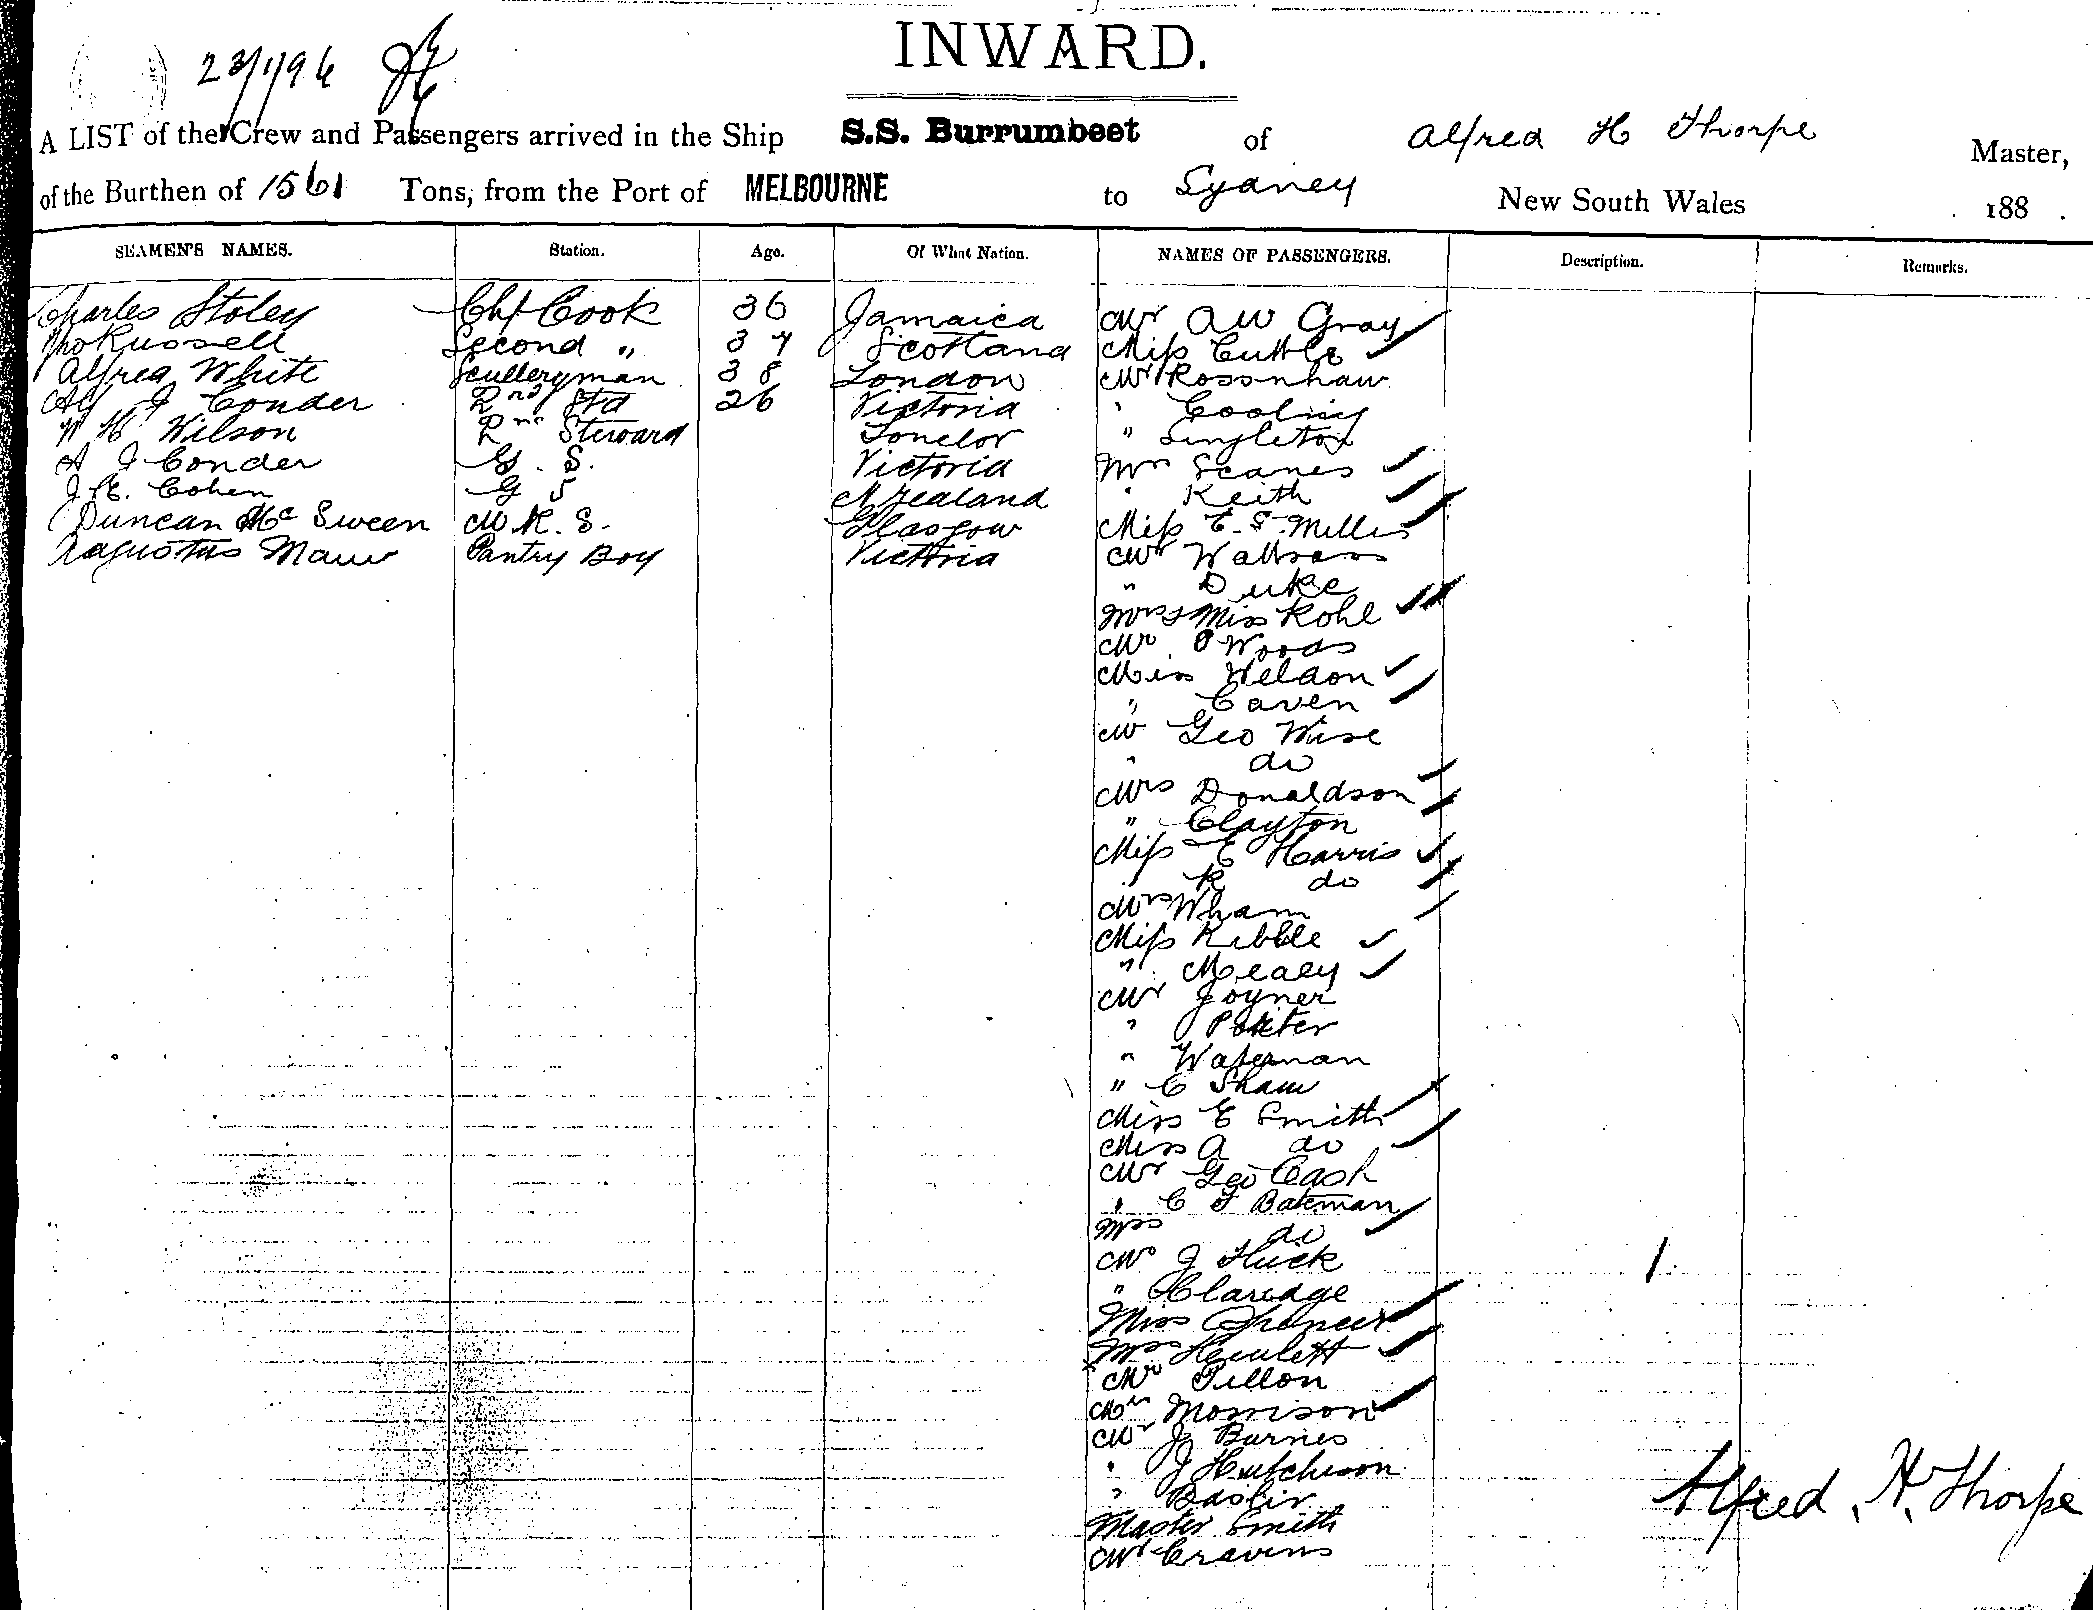 INWARD.
23/1/96
A LIST of the Crew and Passengers arrived in the Ship S.S. Burrumbeet of Alfred H Thorpe Master,
of the Burthen of 1561 Tons, from the Port of MELBOURNE to Sydney New South Wales 188 .
SEAMEN'S NAMES. Station. Age. Of What Nation. NAMES OF PASSENGERS. Description. Remarks.
Charles Stoley Chf Cook 36 Jamaica Mr A W Gray
Russell Second " 37 Scotland Miss Cuttle
Alfred White Sculleryman 38 London Mr Rossnhaw
Alf J Conder 2nd Std 26 Victoria " Cooling
W H Wilson 2nd Steward London " Singleton
A J Conder G. S. Victoria Mrs Scanes
J E. Cohen G S N Zealand " Keith
Duncan Mc Sween M R. S. Glasgow Miss E. S. Miller
Augustus Maur Pantry Boy Victoria Mr
" Duke
Mrs & Miss Kohl
Mr P Woods
Miss Weldon
" Caven
Mr Geo Wise
" do
Mrs Donaldson
" Clayton
Miss E Harris
" R do
Mrs Wham
Miss Kibble
" Mealey
Mr Joyner
" Porter
" Waterman
" C Shaw
Miss E Smith
Miss A do
Mr Geo Cash
" C F Bateman
Mrs do
Mr J Huck
" Claridge
Miss Spencer
Mrs Hewlett
Mr Tillon
Mrs Morrison
Mr J Burnes
" J Hutchison
"
Master Smith
Mr Cravens
Alfred. H. Thorpe